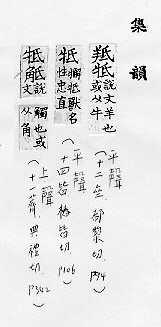 集韻
羝牴 說文羊也或从牛
(平聲 十二齊, 都黎切, P94)
牴 獬牴獸名性忠直
(平聲 十四皆 皆切 P106)
牴觝 說文觸也或从角
(上聲 十一薺 典禮切, P342)